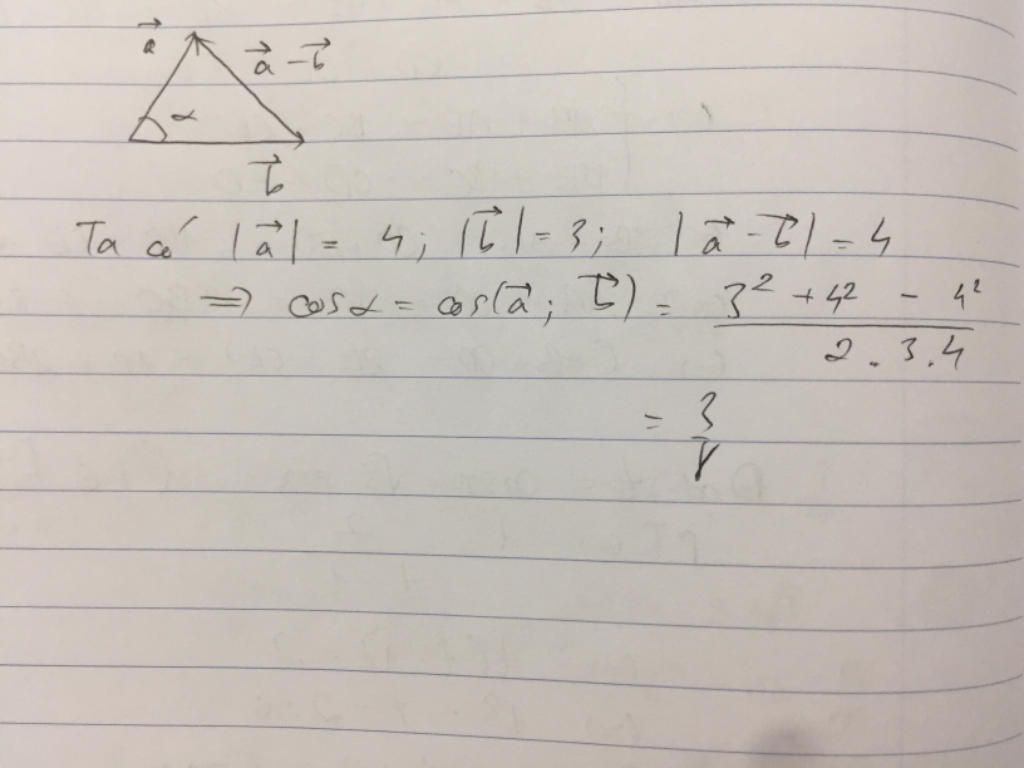 a⃗
a⃗ - b⃗
α
b⃗
Ta có |a⃗| = 4; |b⃗| = 3; |a⃗ - b⃗| = 4
=> cosα = cos(a⃗; b⃗) = (3² + 4² - 4²) / (2.3.4)
= 3/8